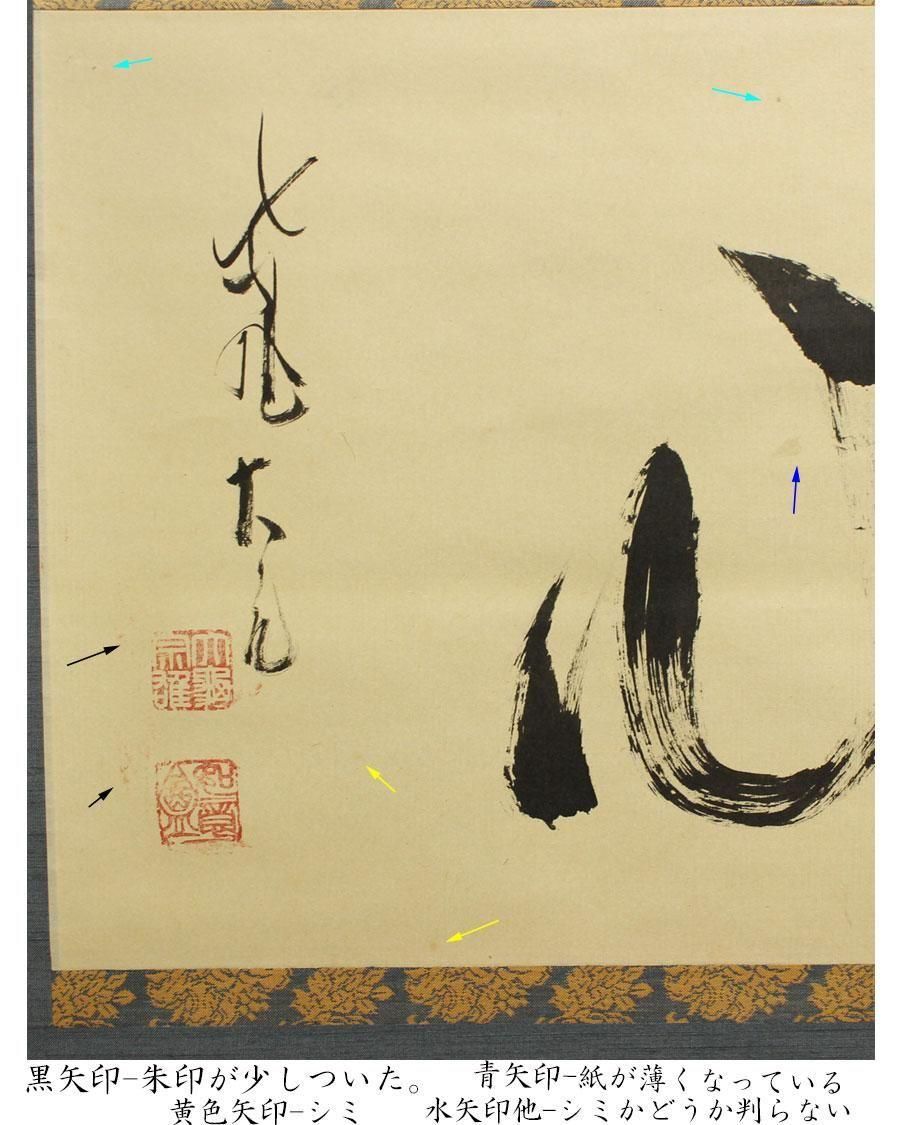 大亀
大龜
宗雄
如意
庵
黒矢印-朱印が少しついた。
青矢印-紙が薄くなっている
黄色矢印-シミ
水矢印他-シミかどうか判らない